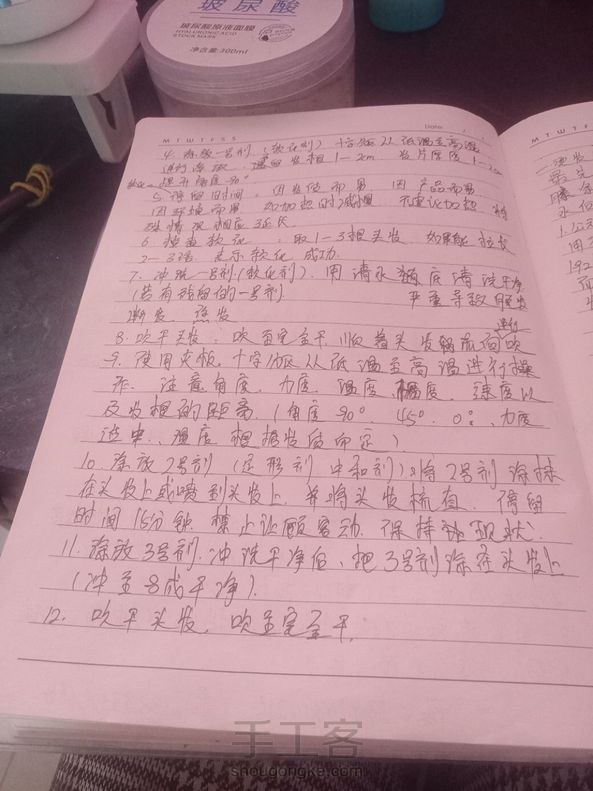 玻尿酸
玻尿酸原液面膜
HYALURONIC ACID
STOCK MARK
净含量:300ml
M T W T F S S
Date
M T W T F S
4. 涂放一号剂(软化剂)十字分区从低温至高温
进行涂放. 发根1-2cm. 发片厚度1-2cm
提升角度90°
5. 停留时间. 因发质而易 因产品而易
因环境而易 如加热时减慢 无建议加热 特
殊情况相应延长
6. 软化. 取1-3根头发. 如果能拉长
2-3倍. 表示软化成功.
7. 冲洗一号剂(软化剂). 用清水彻底清洗干净
(若有残留的一号剂. 严重导致 发
断发
8. 吹干头发. 吹至完全干. 顺着头发 流向吹
进行
9. 使用夹板. 十字分区从低温至高温进行操
作. 注意角度. 力度. 温度. 速度以
及发根的距离. (角度90° 45°. 0°. 力度
适中. 温度根据发质而定)
10. 涂放2号剂(定形剂 中和剂) 将2号剂涂抹
在头发上或喷到头发上. 并将头发梳直. 停留
时间15分钟 禁止让顾客动. 保持 现状.
11. 涂放3号剂. 冲洗干净后. 把3号剂涂在头发上
(冲至8成干净).
12. 吹干头发. 吹至完全干.
手工客
shougongke.com